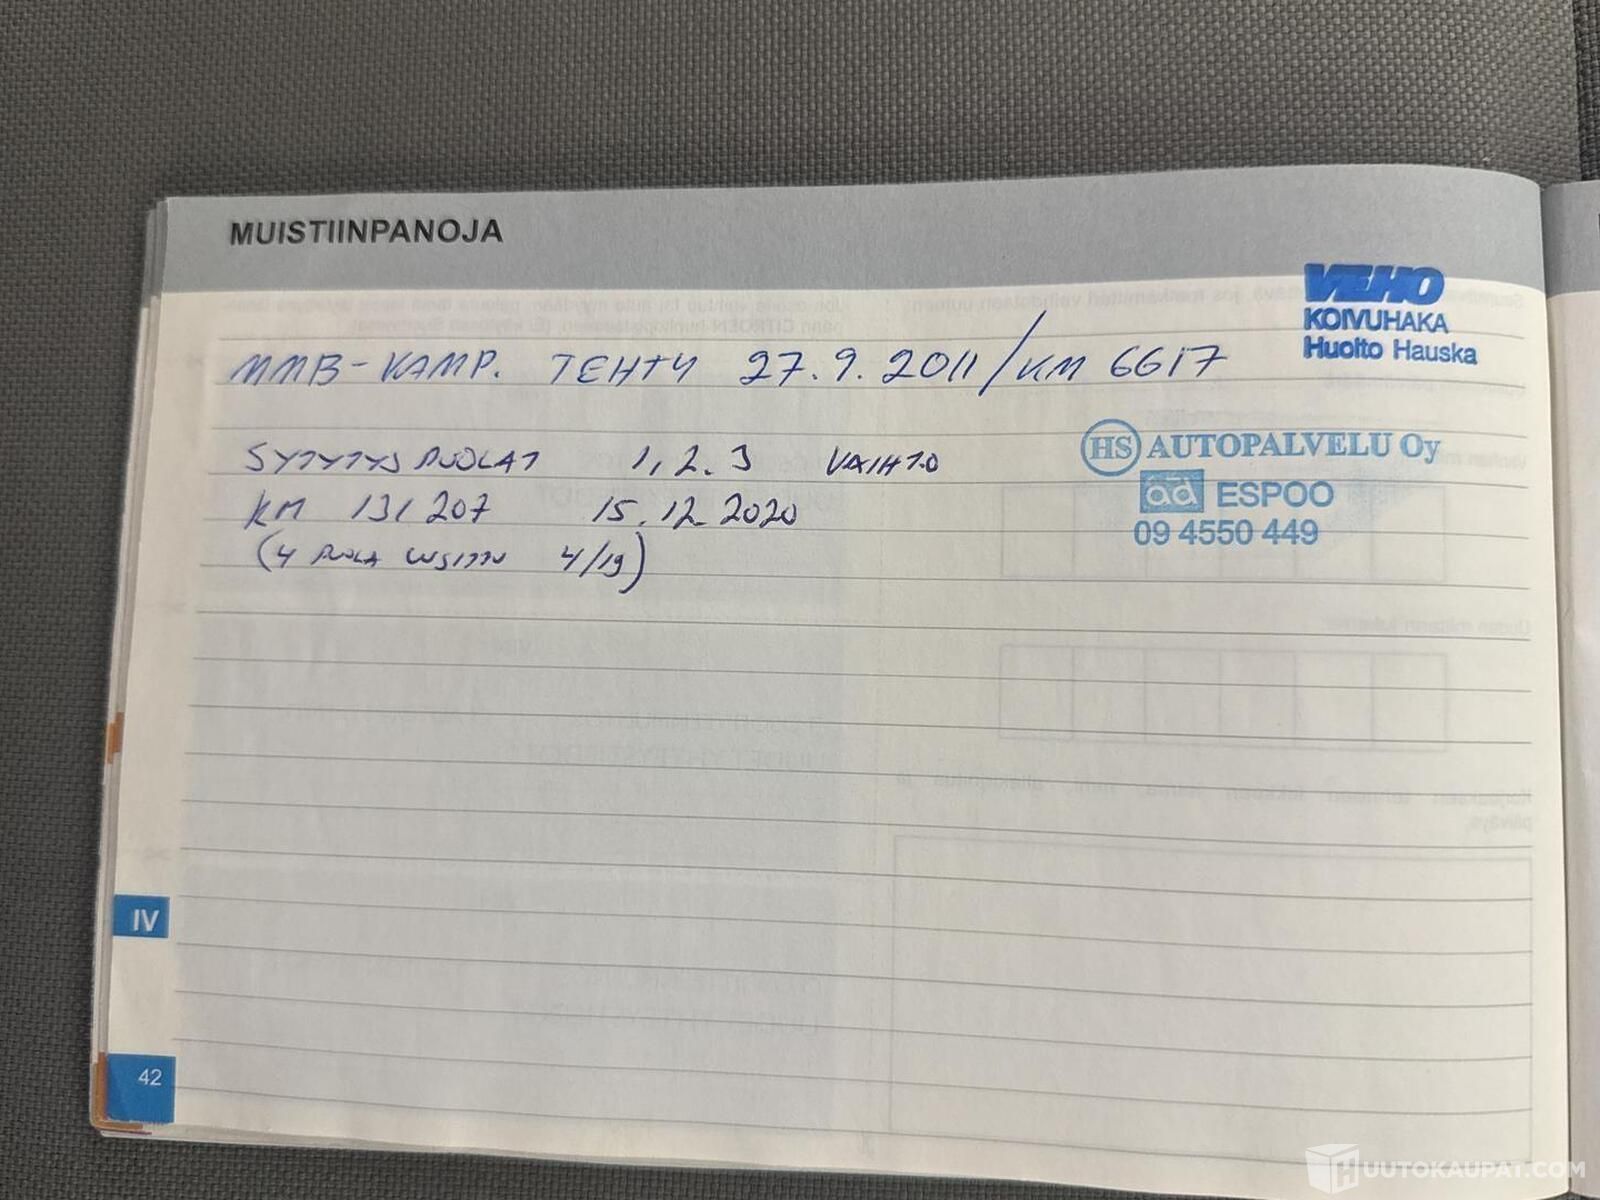 MUISTIINPANOJA
VEHO
KOIVUHAKA
Huolto Hauska
MMB-KAMP. TEHTY 27.9.2011/KM 6617
SYTYTYSPUOLAT 1,2.3 VAIHTO
KM 131207 15.12.2020
(4 PUOLA UUSITTU 4/19)
HS AUTOPALVELU Oy
ad ESPOO
09 4550 449
IV
42
HUUTOKAUPAT.COM